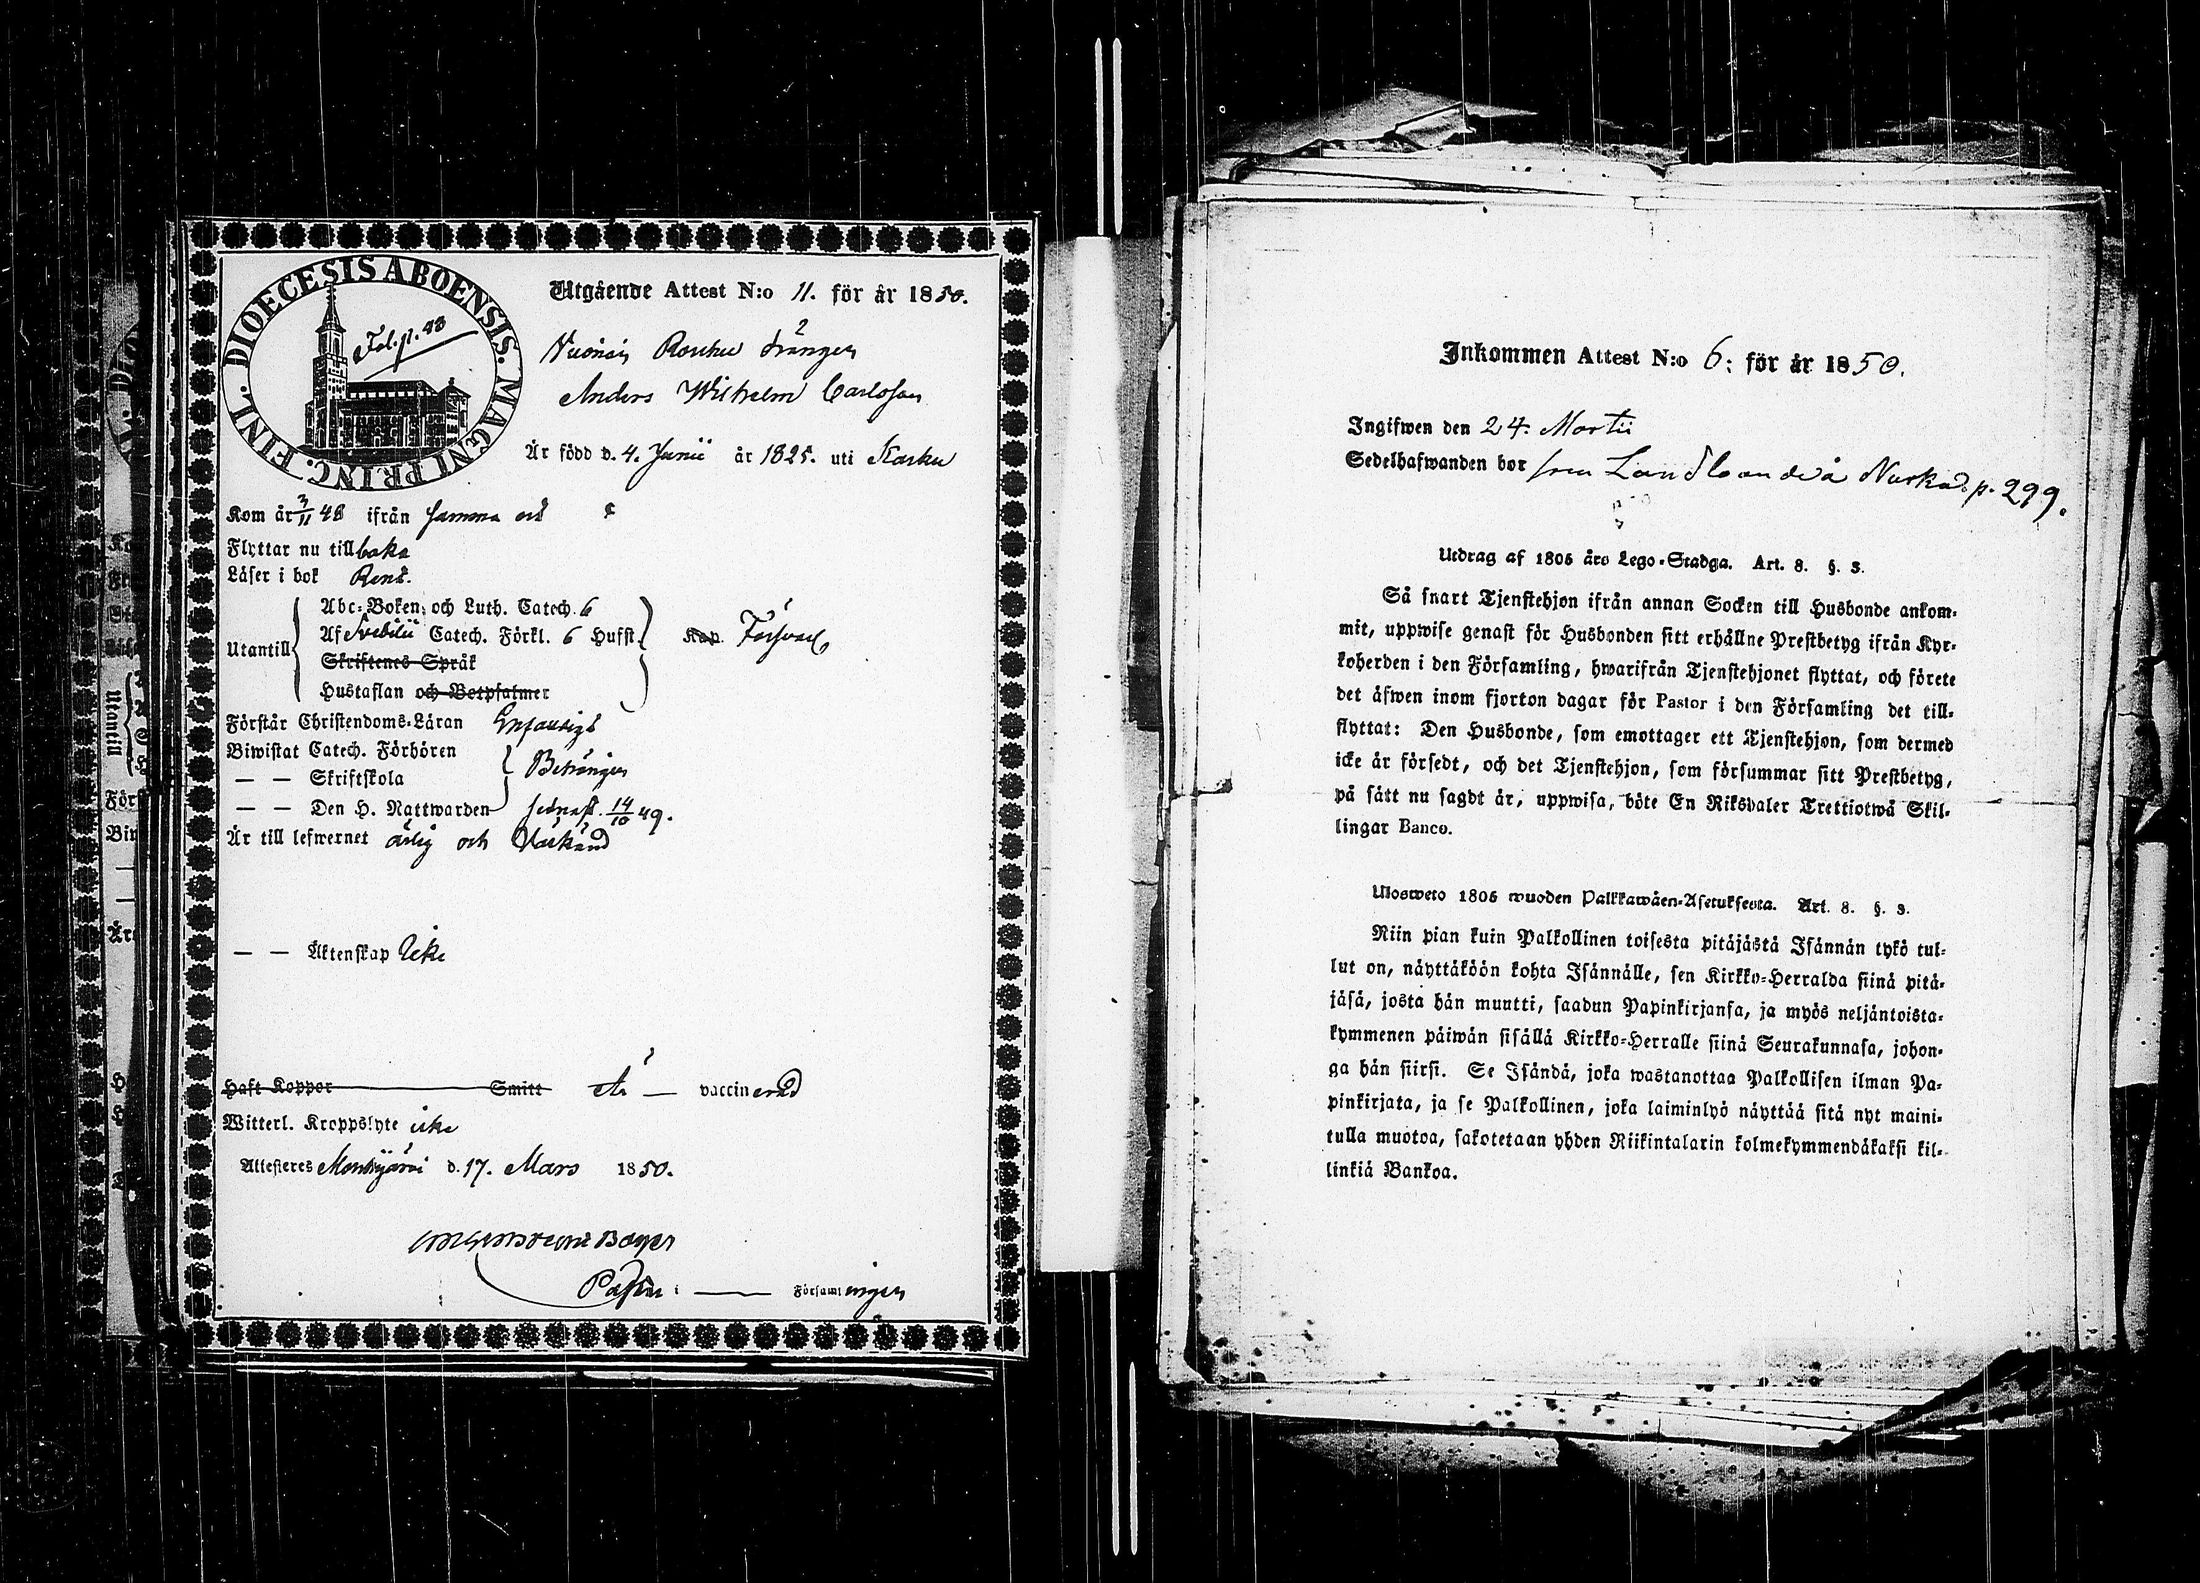 DIOECESIS ABOENSIS. MAGNI PRINC. FINL.
Fol. p. 48
Utgående Attest N:o 11. för år 1850.
drängen
Anders Wilhelm Carlsson
Är född d. 4. Junii år 1825. uti Karku
Kom år 3/11 48 ifrån samma ort
Flyttar nu tillbaka
Läser i bok Rent.
Utantill
Abc-Boken och Luth. Catech. 6
Af Svebilii Catech. Förkl. 6 Hufst. Kap. Försvarl.
Skriftenes Språk
Hustaflan och Botpsalmer
Förstår Christendoms-Läran Enfaldigt
Biwistat Catech. Förhören
— — Skriftskola Behörigen
— — Den H. Nattwarden sednast. 14/10 49.
Är till lefwernet ärlig och
— — Äktenskap Icke
Haft Koppor Smitt Är — vaccinerad
Witterl. Kroppslyte icke
Attesteras Mouhijärvi d. 17. Mars 1850.
Pastor i — Församlingen
Inkommen Attest N:o 6: för år 1850.
Ingifwen den 24. Martii
Sedelhafwanden bor p. 299.
Utdrag af 1805 års Lego-Stadga. Art. 8. §. 3.
Så snart Tjenstehjon ifrån annan Socken till Husbonde ankom-
mit, uppwise genast för Husbonden sitt erhållne Prestbetyg ifrån Kyr-
koherden i den Församling, hwarifrån Tjenstehjonet flyttat, och förete
det äfwen inom fjorton dagar för Pastor i den Församling det till-
flyttat: Den Husbonde, som emottager ett Tjenstehjon, som dermed
icke är försedt, och det Tjenstehjon, som försummar sitt Prestbetyg,
på sätt nu sagdt är, uppwisa, böte En Riksdaler Trettiotwå Skil-
lingar Banco.
Ulosweto 1805 wuoden Palkkawäen-Asetuksesta. Art. 8. §. 3.
Niin pian kuin Palkollinen toisesta pitäjästä Isännän tykö tul-
lut on, näyttäköön kohta Isännälle, sen Kirkko-Herralda siinä pitä-
jäsä, josta hän muutti, saadun Papinkirjansa, ja myös neljäntoista-
kymmenen päiwän sisällä Kirkko-Herralle siinä Seurakunnasa, johon-
ga hän siirsi. Se Isändä, joka wastanottaa Palkollisen ilman Pa-
pinkirjata, ja se Palkollinen, joka laiminlyö näyttää sitä nyt maini-
tulla muotoa, sakotetaan yhden Riikintalarin kolmekymmendäkaksi kil-
linkiä Bankoa.